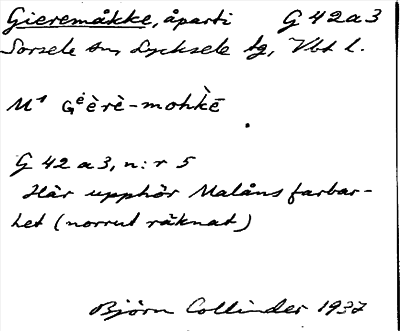 Gieremåkke, åparti G 42 a 3
Sorsele sn, Lycksele tg, Vbt l.
Mˢ Gᵉèrè-mohkè̄
G 42 a 3, n:r 5
Här upphör Malåns farbar-
het (norrut räknat)
Björn Collinder 1937